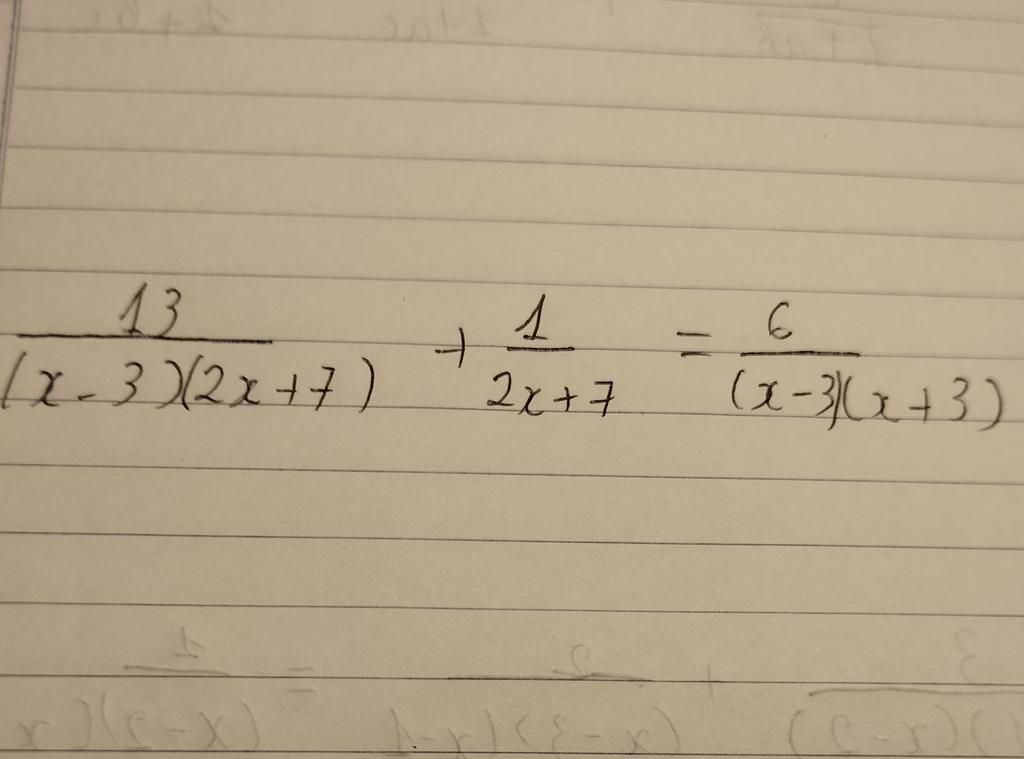 13/((x-3)(2x+7)) + 1/(2x+7) = 6/((x-3)(x+3))